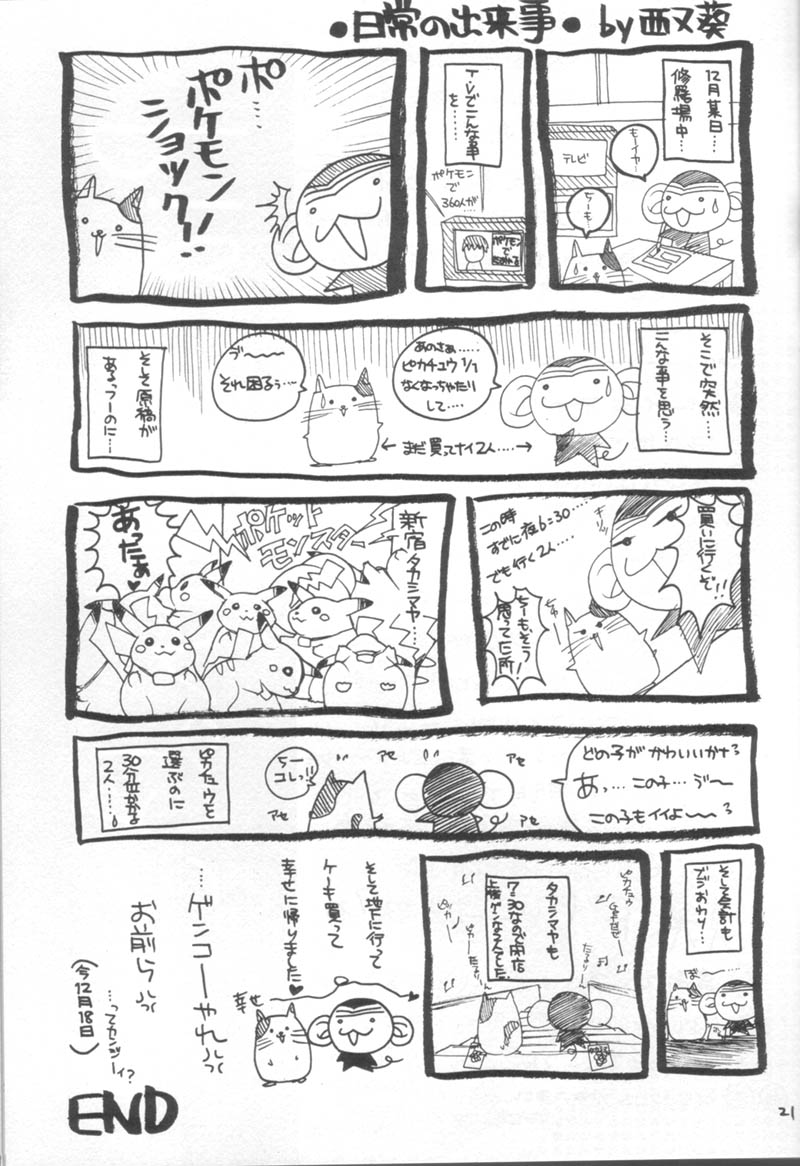 •日常の出来事• by 西又葵
12月某日…
修羅場中…
もーイヤ…
ちーも…
テレビ
T.V.でこんな事
を………
ポケモン
で
360人が…
ポケモン
で
ポ……
ポケモン
ショック!!
そこで突然…
こんな事を思う…
あのさぁ……
ピカチュウ 1/1
なくなっちゃたり
して……
← まだ買ってナイ2人…… →
ゔ〜〜
それ困るぅ…
そして原稿が
あるっつーのに…
買いに行くぞ!!
キリッ
この時
すでに夜6:30……
でも行く2人……
ちーもそう
思ってた所!
ちゅー
新宿タカシマヤ……
ポケット
モンスター
あったぁ♥
どの子がかわいいかナ?
あっ…この子…ゔ〜
この子もイイよ〜〜?
アセ
アセ
アセ
アセ
ちー
コレっ!!
ピカチュウを
選ぶのに
30分位かかる
2人……
そして会計も
ブジおわり…
ぼー……
ピカチュウ
Getだぜ——
タカシマヤも
7:30なので閉店
ピッカー
ピカー
そして地下に行って
ケーキ買って
幸せに帰りました♥
幸せ
……ゲンコーやれっっ
お前らっっ
……ってカンジーィ?
(今12月18日)
END
21